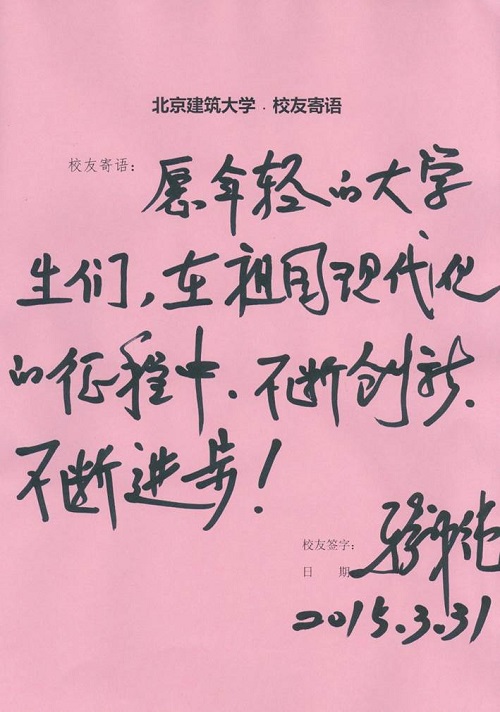 北京建筑大学·校友寄语
校友寄语：愿年轻的大学
生们，在祖国现代化
的征程中、不断创新、
不断进步！
校友签字：
日 期
2015.3.31